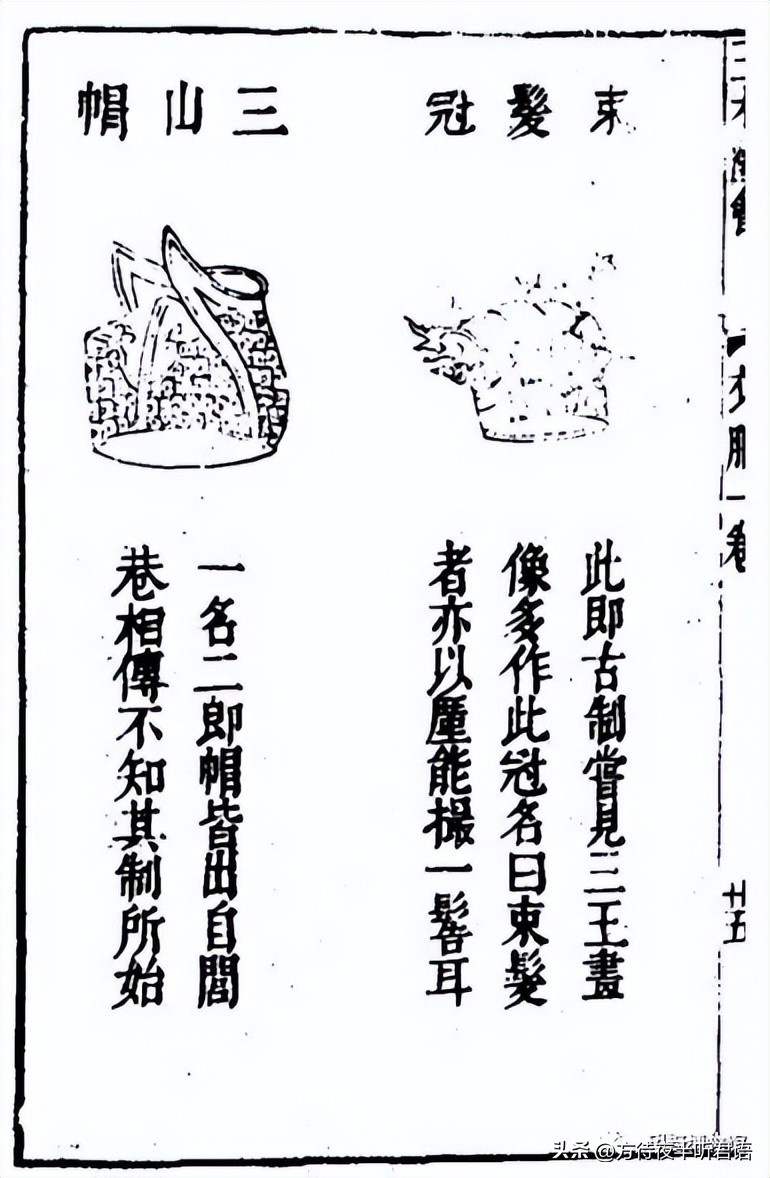 衣服一卷
廿五
束髮冠
此即古制嘗見三王畫
像多作此冠名曰束髮
者亦以厪能撮一髻耳
三山帽
一名二郎帽皆出自閭
巷相傳不知其制所始
头条 @方待夜半听君语